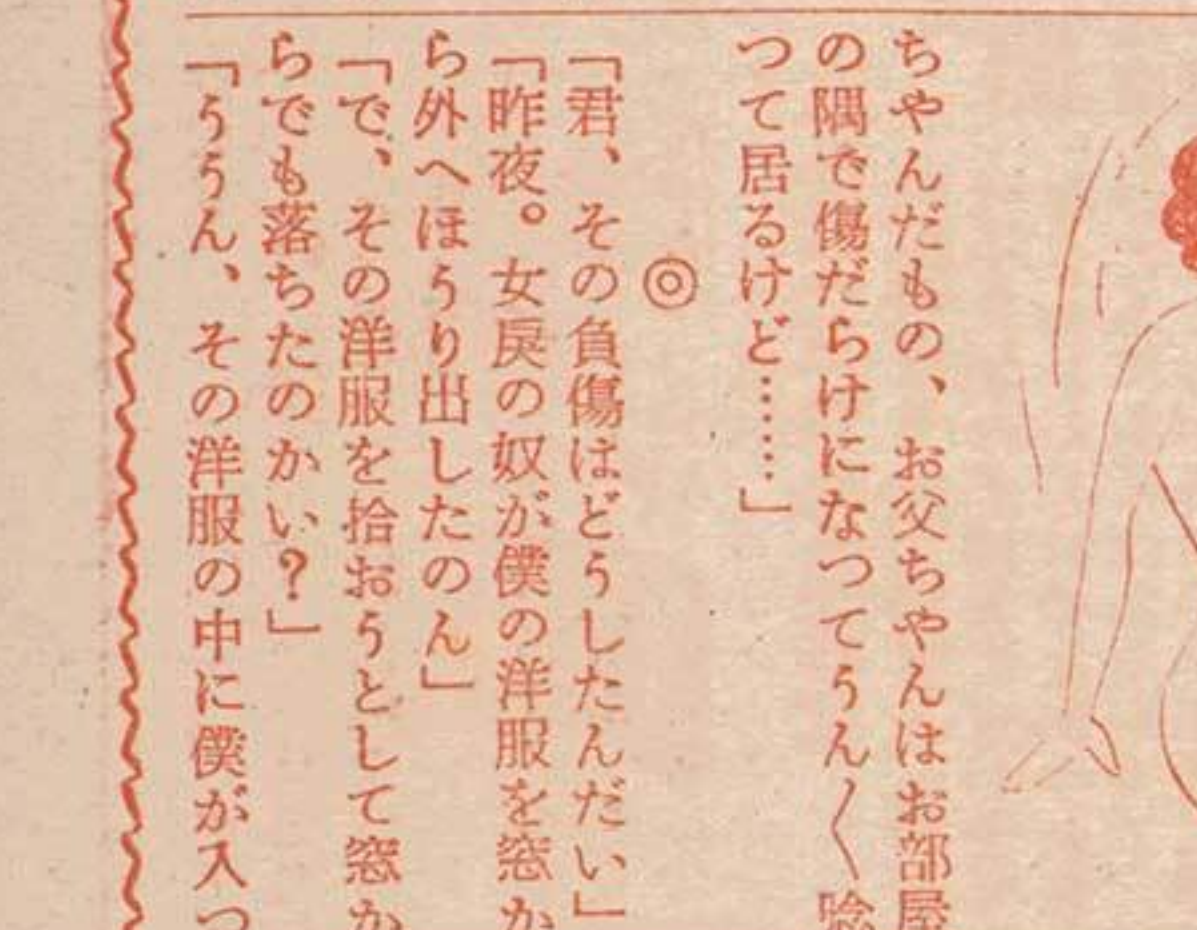 ちやんだもの、お父ちやんはお部屋
の隅で傷だらけになつてうん〱唸
つて居るけど……」
◎
「君、その負傷はどうしたんだい」
「昨夜。女戻の奴が僕の洋服を窓か
ら外へほうり出したのん」
「で、その洋服を拾おうとして窓か
らでも落ちたのかい?」
「ううん、その洋服の中に僕が入つ